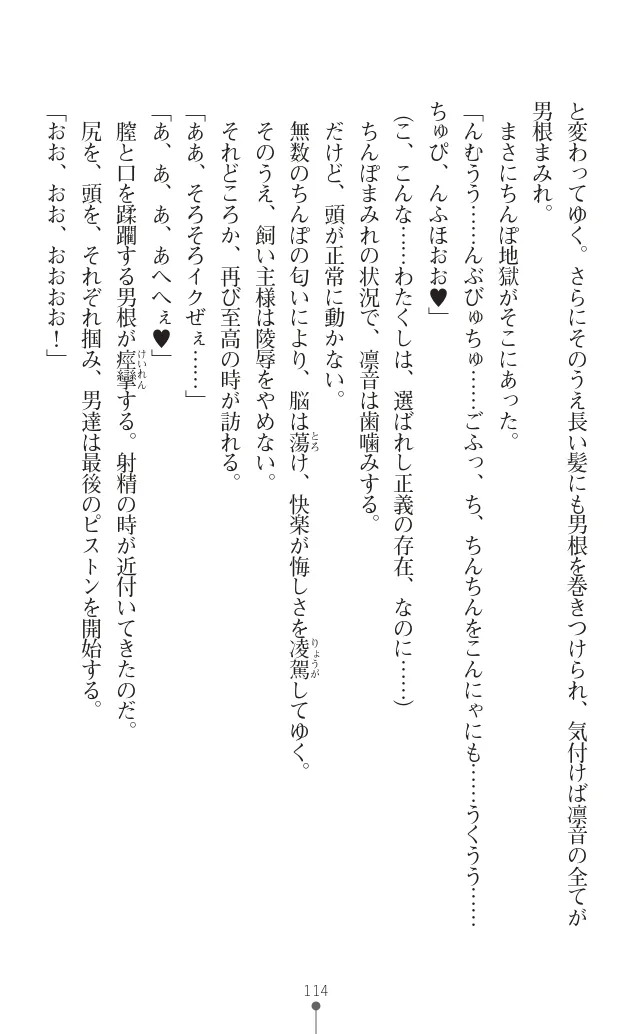 と変わってゆく。さらにそのうえ長い髪にも男根を巻きつけられ、気付けば凛音の全てが
男根まみれ。
まさにちんぽ地獄がそこにあった。
「んむうう……んぶびゅちゅ……ごふっ、ち、ちんちんをこんにゃにも……うくうう……
ちゅぴ、んふほおお♥」
(こ、こんな……わたくしは、選ばれし正義の存在、なのに……)
ちんぽまみれの状況で、凛音は歯噛みする。
だけど、頭が正常に動かない。
無数のちんぽの匂いにより、脳は蕩とろけ、快楽が悔しさを凌駕りょうがしてゆく。
そのうえ、飼い主様は陵辱をやめない。
それどころか、再び至高の時が訪れる。
「ああ、そろそろイクぜぇ……」
「あ、あ、あ、あへへぇ♥」
膣と口を蹂躙する男根が痙攣けいれんする。射精の時が近付いてきたのだ。
尻を、頭を、それぞれ掴み、男達は最後のピストンを開始する。
「おお、おお、おおおお！」
114